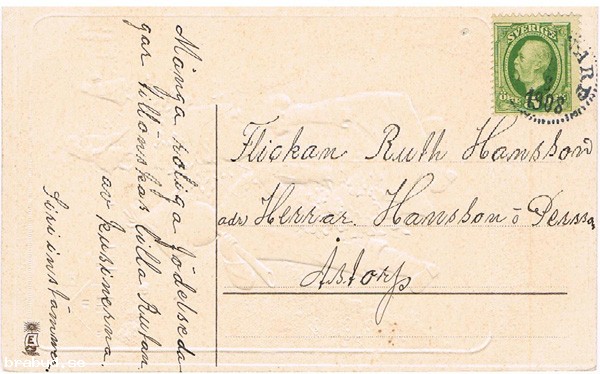 Många roliga födelseda
gar tillönskas lilla Rutan
av kusinerna.
Siri instämmer.
SVERIGE
1908
Flickan Ruth Hansson
adr Herrar Hansson o Persson
Åstorp
brabyd.se